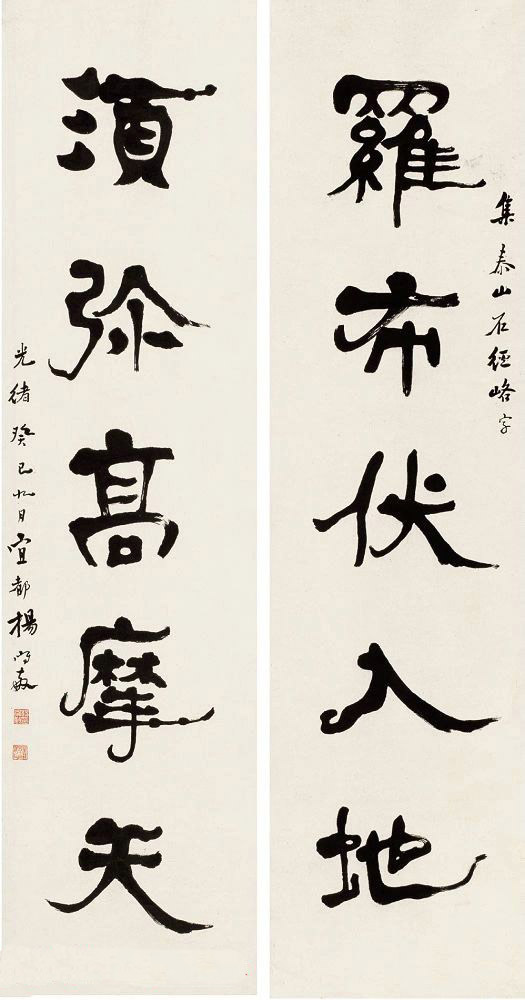 羅布伏入地
集泰山石經峪字
湏弥髙摩天
光緒癸巳日宜都楊守敬